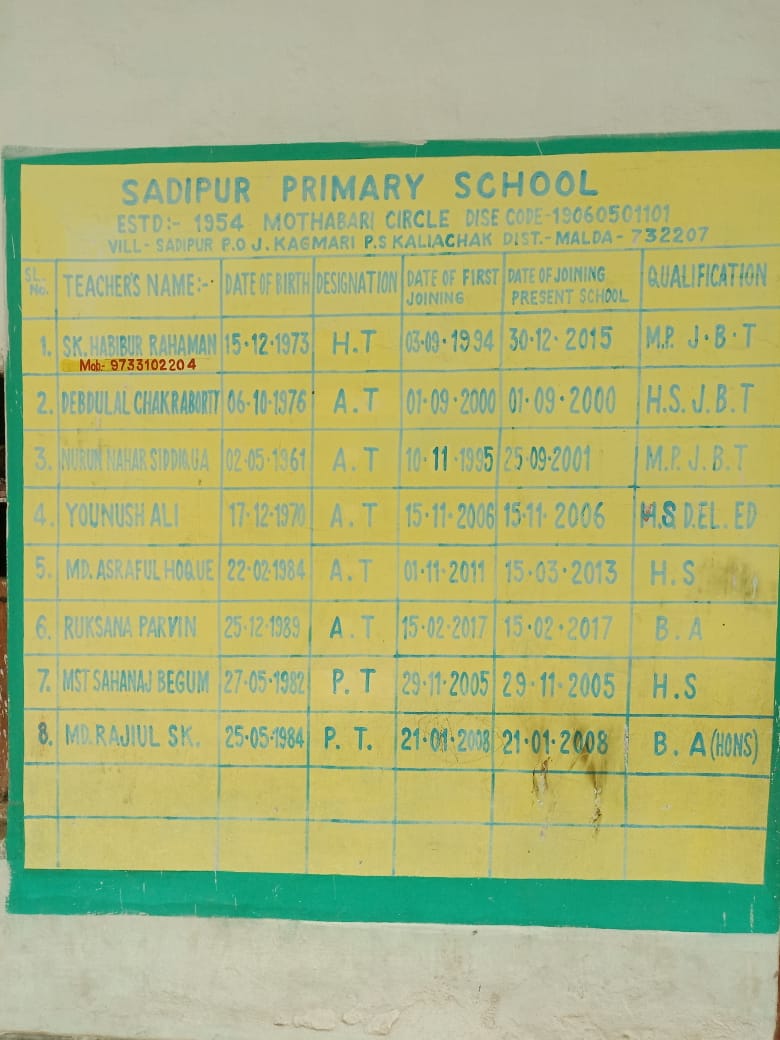 SADIPUR PRIMARY SCHOOL
ESTD:- 1954 MOTHABARI CIRCLE DISE CODE-19060501101
VILL- SADIPUR P.O J. KAGMARI P.S KALIACHAK DIST.- MALDA - 732207
SL. No. TEACHER'S NAME:- DATE OF BIRTH DESIGNATION DATE OF FIRST JOINING DATE OF JOINING PRESENT SCHOOL QUALIFICATION
1. SK. HABIBUR RAHAMAN 15·12·1973 H.T 03·09·1994 30·12·2015 M.P. J·B·T
Mob:- 9733102204
2. DEBDULAL CHAKRABORTY 06·10·1976 A.T 01·09·2000 01·09·2000 H.S. J.B.T
3. NURUN NAHAR SIDDIQUA 02·05·1961 A.T 10·11·1995 25·09·2001 M.P. J.B.T
4. YOUNUSH ALI 17·12·1970 A.T 15·11·2006 15·11·2006 H.S D.EL. ED
5. MD. ASRAFUL HOQUE 22·02·1984 A.T 01·11·2011 15·03·2013 H.S
6. RUKSANA PARVIN 25·12·1989 A.T 15·02·2017 15·02·2017 B.A
7. MST SAHANAJ BEGUM 27·05·1982 P.T 29·11·2005 29·11·2005 H.S
8. MD. RAJIUL SK. 25·05·1984 P.T. 21·01·2008 21·01·2008 B.A (HONS)